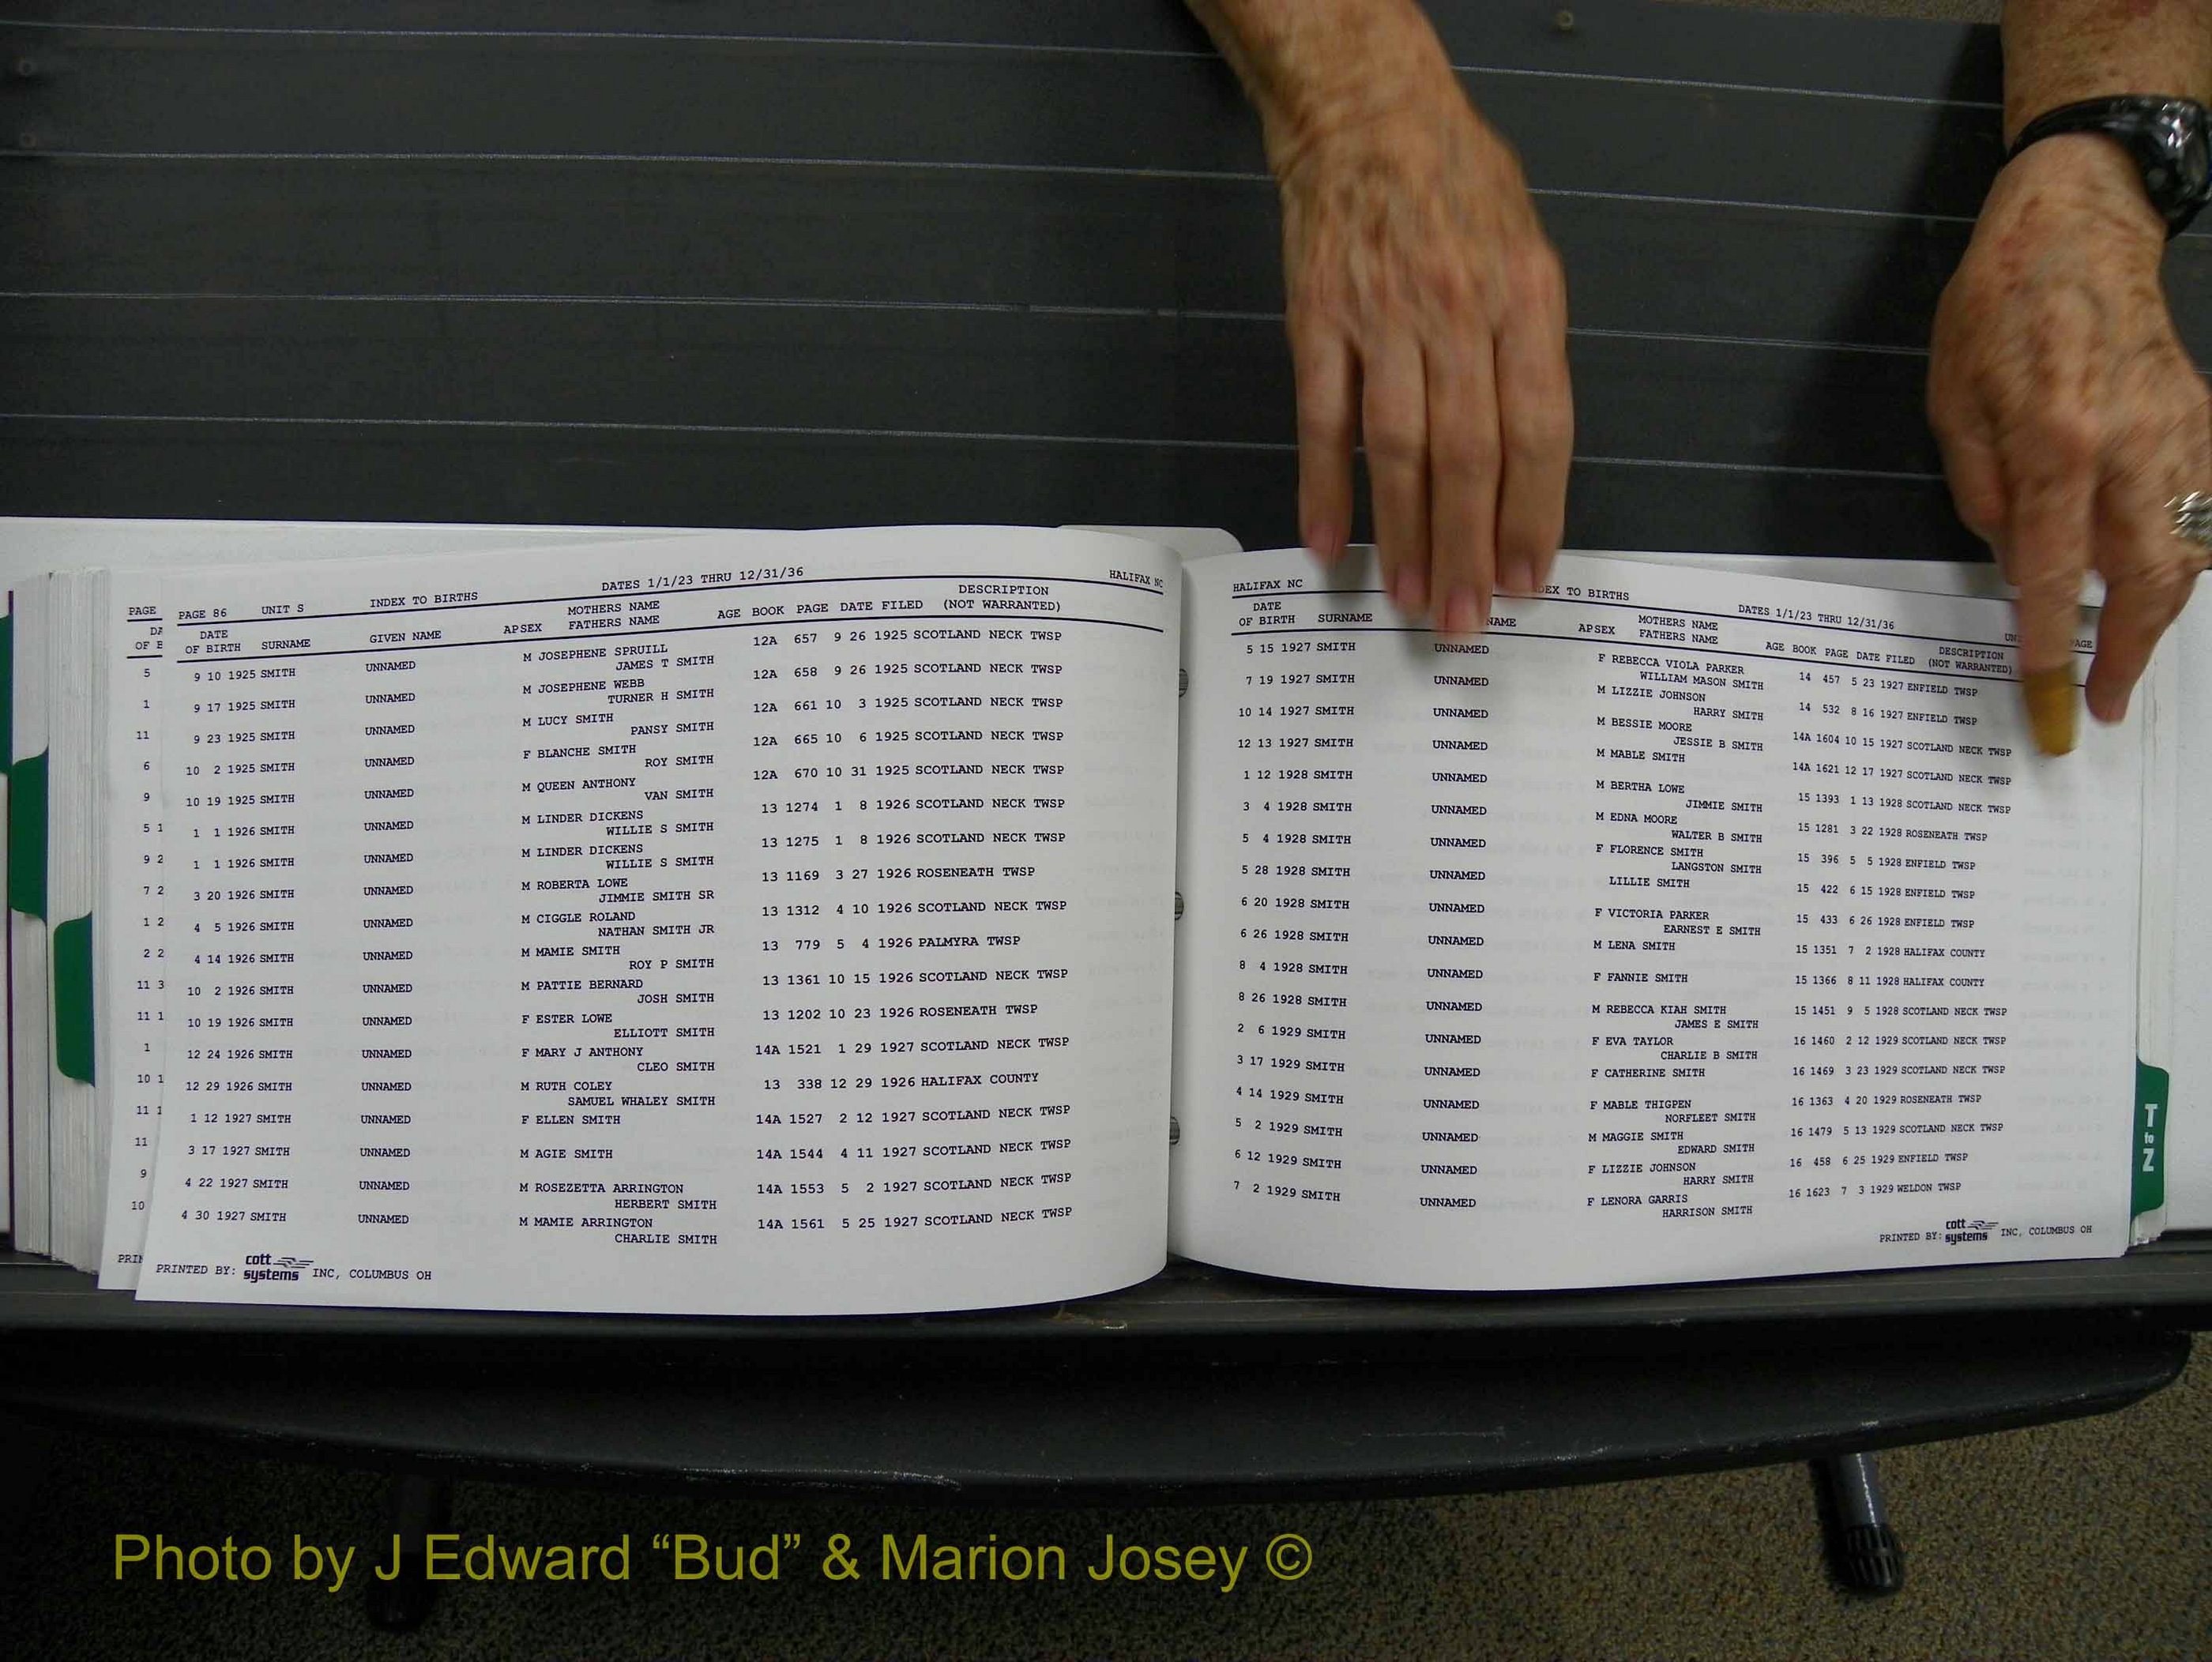 PAGE
DA
OF B
5
1
11
6
9
5 1
9 2
7 2
1 2
2 2
11 3
11 1
1
10 1
11 1
11
9
10
PRIN
PAGE 86 UNIT S INDEX TO BIRTHS DATES 1/1/23 THRU 12/31/36 HALIFAX NC
DATE OF BIRTH SURNAME GIVEN NAME AP SEX MOTHERS NAME FATHERS NAME AGE BOOK PAGE DATE FILED DESCRIPTION (NOT WARRANTED)
9 10 1925 SMITH UNNAMED M JOSEPHENE SPRUILL 12A 657 9 26 1925 SCOTLAND NECK TWSP
JAMES T SMITH
9 17 1925 SMITH UNNAMED M JOSEPHENE WEBB 12A 658 9 26 1925 SCOTLAND NECK TWSP
TURNER H SMITH
9 23 1925 SMITH UNNAMED M LUCY SMITH 12A 661 10 3 1925 SCOTLAND NECK TWSP
PANSY SMITH
10 2 1925 SMITH UNNAMED F BLANCHE SMITH 12A 665 10 6 1925 SCOTLAND NECK TWSP
ROY SMITH
10 19 1925 SMITH UNNAMED M QUEEN ANTHONY 12A 670 10 31 1925 SCOTLAND NECK TWSP
VAN SMITH
1 1 1926 SMITH UNNAMED M LINDER DICKENS 13 1274 1 8 1926 SCOTLAND NECK TWSP
WILLIE S SMITH
1 1 1926 SMITH UNNAMED M LINDER DICKENS 13 1275 1 8 1926 SCOTLAND NECK TWSP
WILLIE S SMITH
3 20 1926 SMITH UNNAMED M ROBERTA LOWE 13 1169 3 27 1926 ROSENEATH TWSP
JIMMIE SMITH SR
4 5 1926 SMITH UNNAMED M CIGGLE ROLAND 13 1312 4 10 1926 SCOTLAND NECK TWSP
NATHAN SMITH JR
4 14 1926 SMITH UNNAMED M MAMIE SMITH 13 779 5 4 1926 PALMYRA TWSP
ROY P SMITH
10 2 1926 SMITH UNNAMED M PATTIE BERNARD 13 1361 10 15 1926 SCOTLAND NECK TWSP
JOSH SMITH
10 19 1926 SMITH UNNAMED F ESTER LOWE 13 1202 10 23 1926 ROSENEATH TWSP
ELLIOTT SMITH
12 24 1926 SMITH UNNAMED F MARY J ANTHONY 14A 1521 1 29 1927 SCOTLAND NECK TWSP
CLEO SMITH
12 29 1926 SMITH UNNAMED M RUTH COLEY 13 338 12 29 1926 HALIFAX COUNTY
SAMUEL WHALEY SMITH
1 12 1927 SMITH UNNAMED F ELLEN SMITH 14A 1527 2 12 1927 SCOTLAND NECK TWSP
3 17 1927 SMITH UNNAMED M AGIE SMITH 14A 1544 4 11 1927 SCOTLAND NECK TWSP
4 22 1927 SMITH UNNAMED M ROSEZETTA ARRINGTON 14A 1553 5 2 1927 SCOTLAND NECK TWSP
HERBERT SMITH
4 30 1927 SMITH UNNAMED M MAMIE ARRINGTON 14A 1561 5 25 1927 SCOTLAND NECK TWSP
CHARLIE SMITH
PRINTED BY: cott systems INC, COLUMBUS OH
HALIFAX NC DEX TO BIRTHS DATES 1/1/23 THRU 12/31/36 UN AGE
DATE OF BIRTH SURNAME NAME AP SEX MOTHERS NAME FATHERS NAME AGE BOOK PAGE DATE FILED DESCRIPTION (NOT WARRANTED)
5 15 1927 SMITH UNNAMED F REBECCA VIOLA PARKER 14 457 5 23 1927 ENFIELD TWSP
WILLIAM MASON SMITH
7 19 1927 SMITH UNNAMED M LIZZIE JOHNSON 14 532 8 16 1927 ENFIELD TWSP
HARRY SMITH
10 14 1927 SMITH UNNAMED M BESSIE MOORE 14A 1604 10 15 1927 SCOTLAND NECK TWSP
JESSIE B SMITH
12 13 1927 SMITH UNNAMED M MABLE SMITH 14A 1621 12 17 1927 SCOTLAND NECK TWSP
1 12 1928 SMITH UNNAMED M BERTHA LOWE 15 1393 1 13 1928 SCOTLAND NECK TWSP
JIMMIE SMITH
3 4 1928 SMITH UNNAMED M EDNA MOORE 15 1281 3 22 1928 ROSENEATH TWSP
WALTER B SMITH
5 4 1928 SMITH UNNAMED F FLORENCE SMITH 15 396 5 5 1928 ENFIELD TWSP
LANGSTON SMITH
5 28 1928 SMITH UNNAMED LILLIE SMITH 15 422 6 15 1928 ENFIELD TWSP
6 20 1928 SMITH UNNAMED F VICTORIA PARKER 15 433 6 26 1928 ENFIELD TWSP
EARNEST E SMITH
6 26 1928 SMITH UNNAMED M LENA SMITH 15 1351 7 2 1928 HALIFAX COUNTY
8 4 1928 SMITH UNNAMED F FANNIE SMITH 15 1366 8 11 1928 HALIFAX COUNTY
8 26 1928 SMITH UNNAMED M REBECCA KIAH SMITH 15 1451 9 5 1928 SCOTLAND NECK TWSP
JAMES E SMITH
2 6 1929 SMITH UNNAMED F EVA TAYLOR 16 1460 2 12 1929 SCOTLAND NECK TWSP
CHARLIE B SMITH
3 17 1929 SMITH UNNAMED F CATHERINE SMITH 16 1469 3 23 1929 SCOTLAND NECK TWSP
4 14 1929 SMITH UNNAMED F MABLE THIGPEN 16 1363 4 20 1929 ROSENEATH TWSP
NORFLEET SMITH
5 2 1929 SMITH UNNAMED M MAGGIE SMITH 16 1479 5 13 1929 SCOTLAND NECK TWSP
EDWARD SMITH
6 12 1929 SMITH UNNAMED F LIZZIE JOHNSON 16 458 6 25 1929 ENFIELD TWSP
HARRY SMITH
7 2 1929 SMITH UNNAMED F LENORA GARRIS 16 1623 7 3 1929 WELDON TWSP
HARRISON SMITH
PRINTED BY: cott systems INC, COLUMBUS OH
T to Z
Photo by J Edward “Bud” & Marion Josey ©